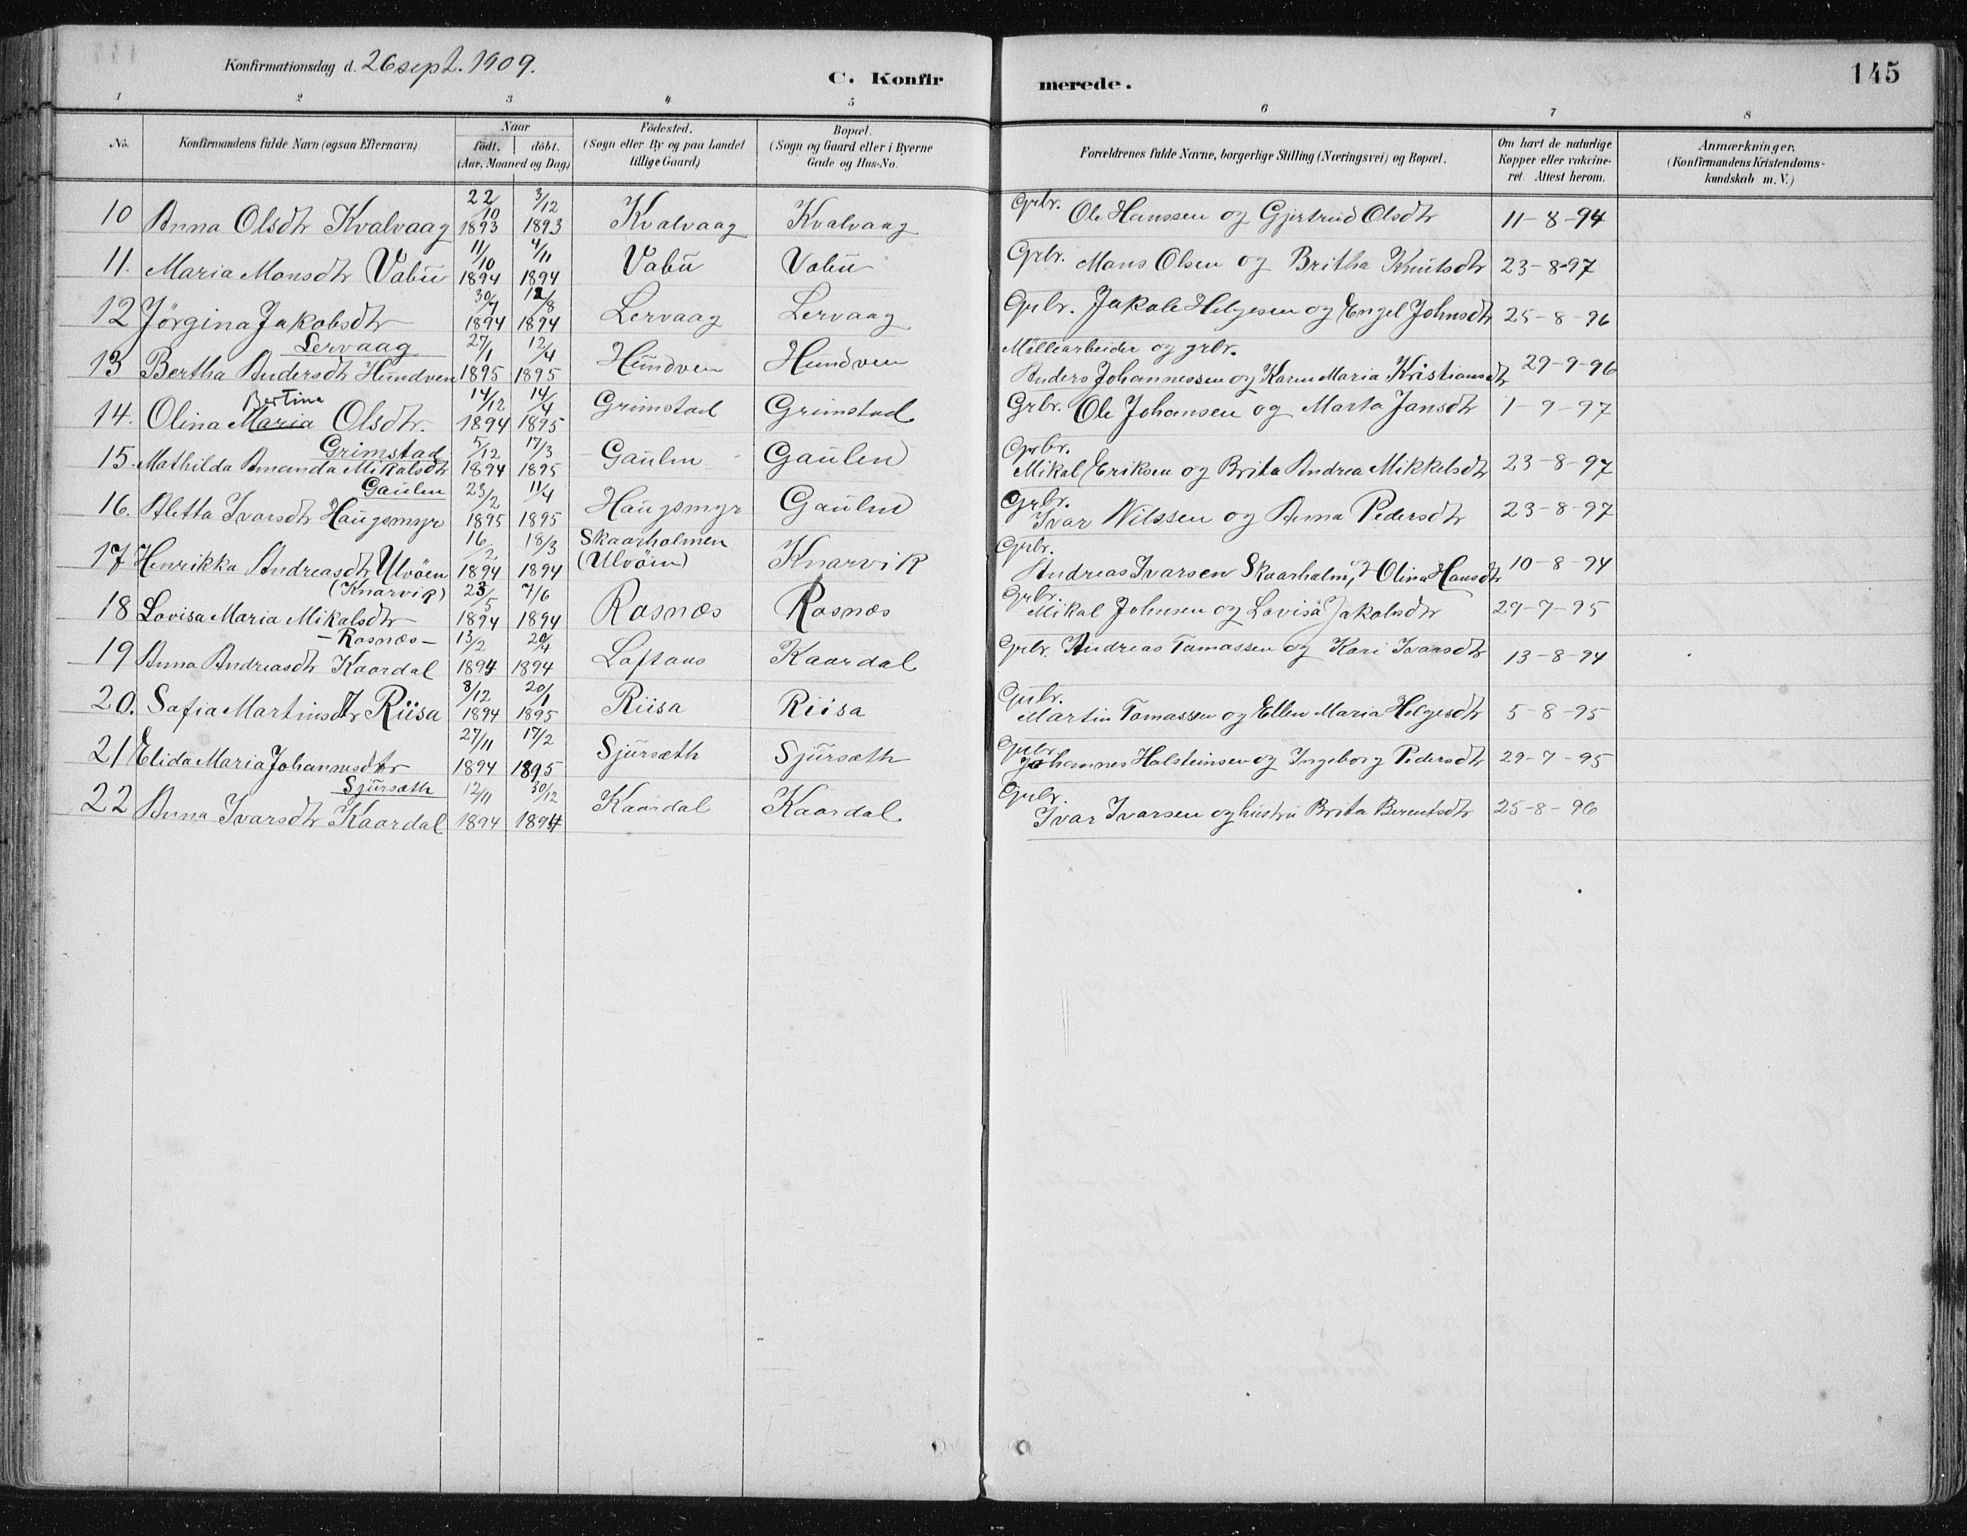 Konfirmationsdag d. 26 sept. 1909.
C. Konfirmerede.
145
1 2 3 4 5 6 7 8
No. Konfirmandens fulde Navn (ogsaa Efternavn) Naar födt. döbt. (Aar, Maaned og Dag) Födested. (Sogn eller By og paa Landet tillige Gaard) Bopæl. (Sogn og Gaard eller i Byerne Gade og Hus-No. Forældrenes fulde Navne, borgerlige Stilling (Næringsvei) og Bopæl. Om havt de naturlige Kopper eller vakcineret. Attest herom. Anmærkninger. (Konfirmandens Kristendomskundskab m. V.)
10 Anna Olsdtr Kvalvaag 22/10 1893 3/12 1893 Kvalvaag Kvalvaag Grbr. Ole Hanssen og Gjertrud Olsdtr 11-8-94
11. Maria Monsdtr Vabü 11/10 1894 4/11 1894 Vabü Vabü Grbr. Mons Olsen og Britha Knütsdtr 23-8-97
12 Jörgina Jakobsdtr Lervaag 30/7 1894 12/8 1894 Lervaag Lervaag Grbr. Jakob Helgesen og Engel Johnsdtr 25-8-96
13 Bertha Andersdtr Hündven 27/1 1895 12/4 1895 Hündven Hundven Möllearbeider og grbr. Anders Johannessen og Karen Maria Kristiansdtr 29-9-96
14. Olina Maria Bertina Olsdtr. Grimstad 14/12 1894 14/4 1895 Grimstad Grimstad Grbr. Ole Johansen og Marta Jansdtr 1-9-97
15. Mathilda Amanda Mikalsdtr Gaulen 5/12 1894 17/3 1895 Gaülen Gaülen Grbr. Mikal Eriksen og Brita Andrea Mikkelsdtr 23-8-97
16. Aletta Ivarsdtr Haugsmyr 23/2 1895 11/4 1895 Haugsmyr Gaülen Grbr. Ivar Nilssen og Anna Pedersdtr 23-8-97
17 Henrikka Andreasdtr Ulvöen (Knarvik) 16/2 1894 18/3 1894 Skaarholmen (Ulvöen) Knarvik Grbr. Andreas Ivarsen Skaarholm, & Olina Hansdtr 10-8-94
18 Lovisa Maria Mikalsdtr -Rosnæs- 23/5 1894 7/6 1894 Rosnæs Rosnæs Grbr. Mikal Johnsen og Lovisa Jakobsdtr 29-7-95
19 Anna Andreasdtr Kaardal 13/2 1894 20/4 1894 Loftaas Kaardal Grbr. Andreas Tomassen og Kari Ivarsdtr 13-8-94
20. Sofia Martinsdtr Riisa 8/12 1894 20/1 1895 Riisa Riisa Grbr. Martin Tomassen og Ellen Maria Helgesdtr 5-8-95
21 Elida Maria Johannesdtr Sjürsæth 27/11 1894 17/2 1895 Sjürsæth Sjürsæth Grbr. Johannes Halsteinsen og Ingeborg Pedersdtr 29-7-95
22 Anna Ivarsdtr Kaardal 12/11 1894 30/12 1894 Kaardal Kaardal Grbr. Ivar Ivarsen og hüstrü Brita Berentsdtr 25-8-96